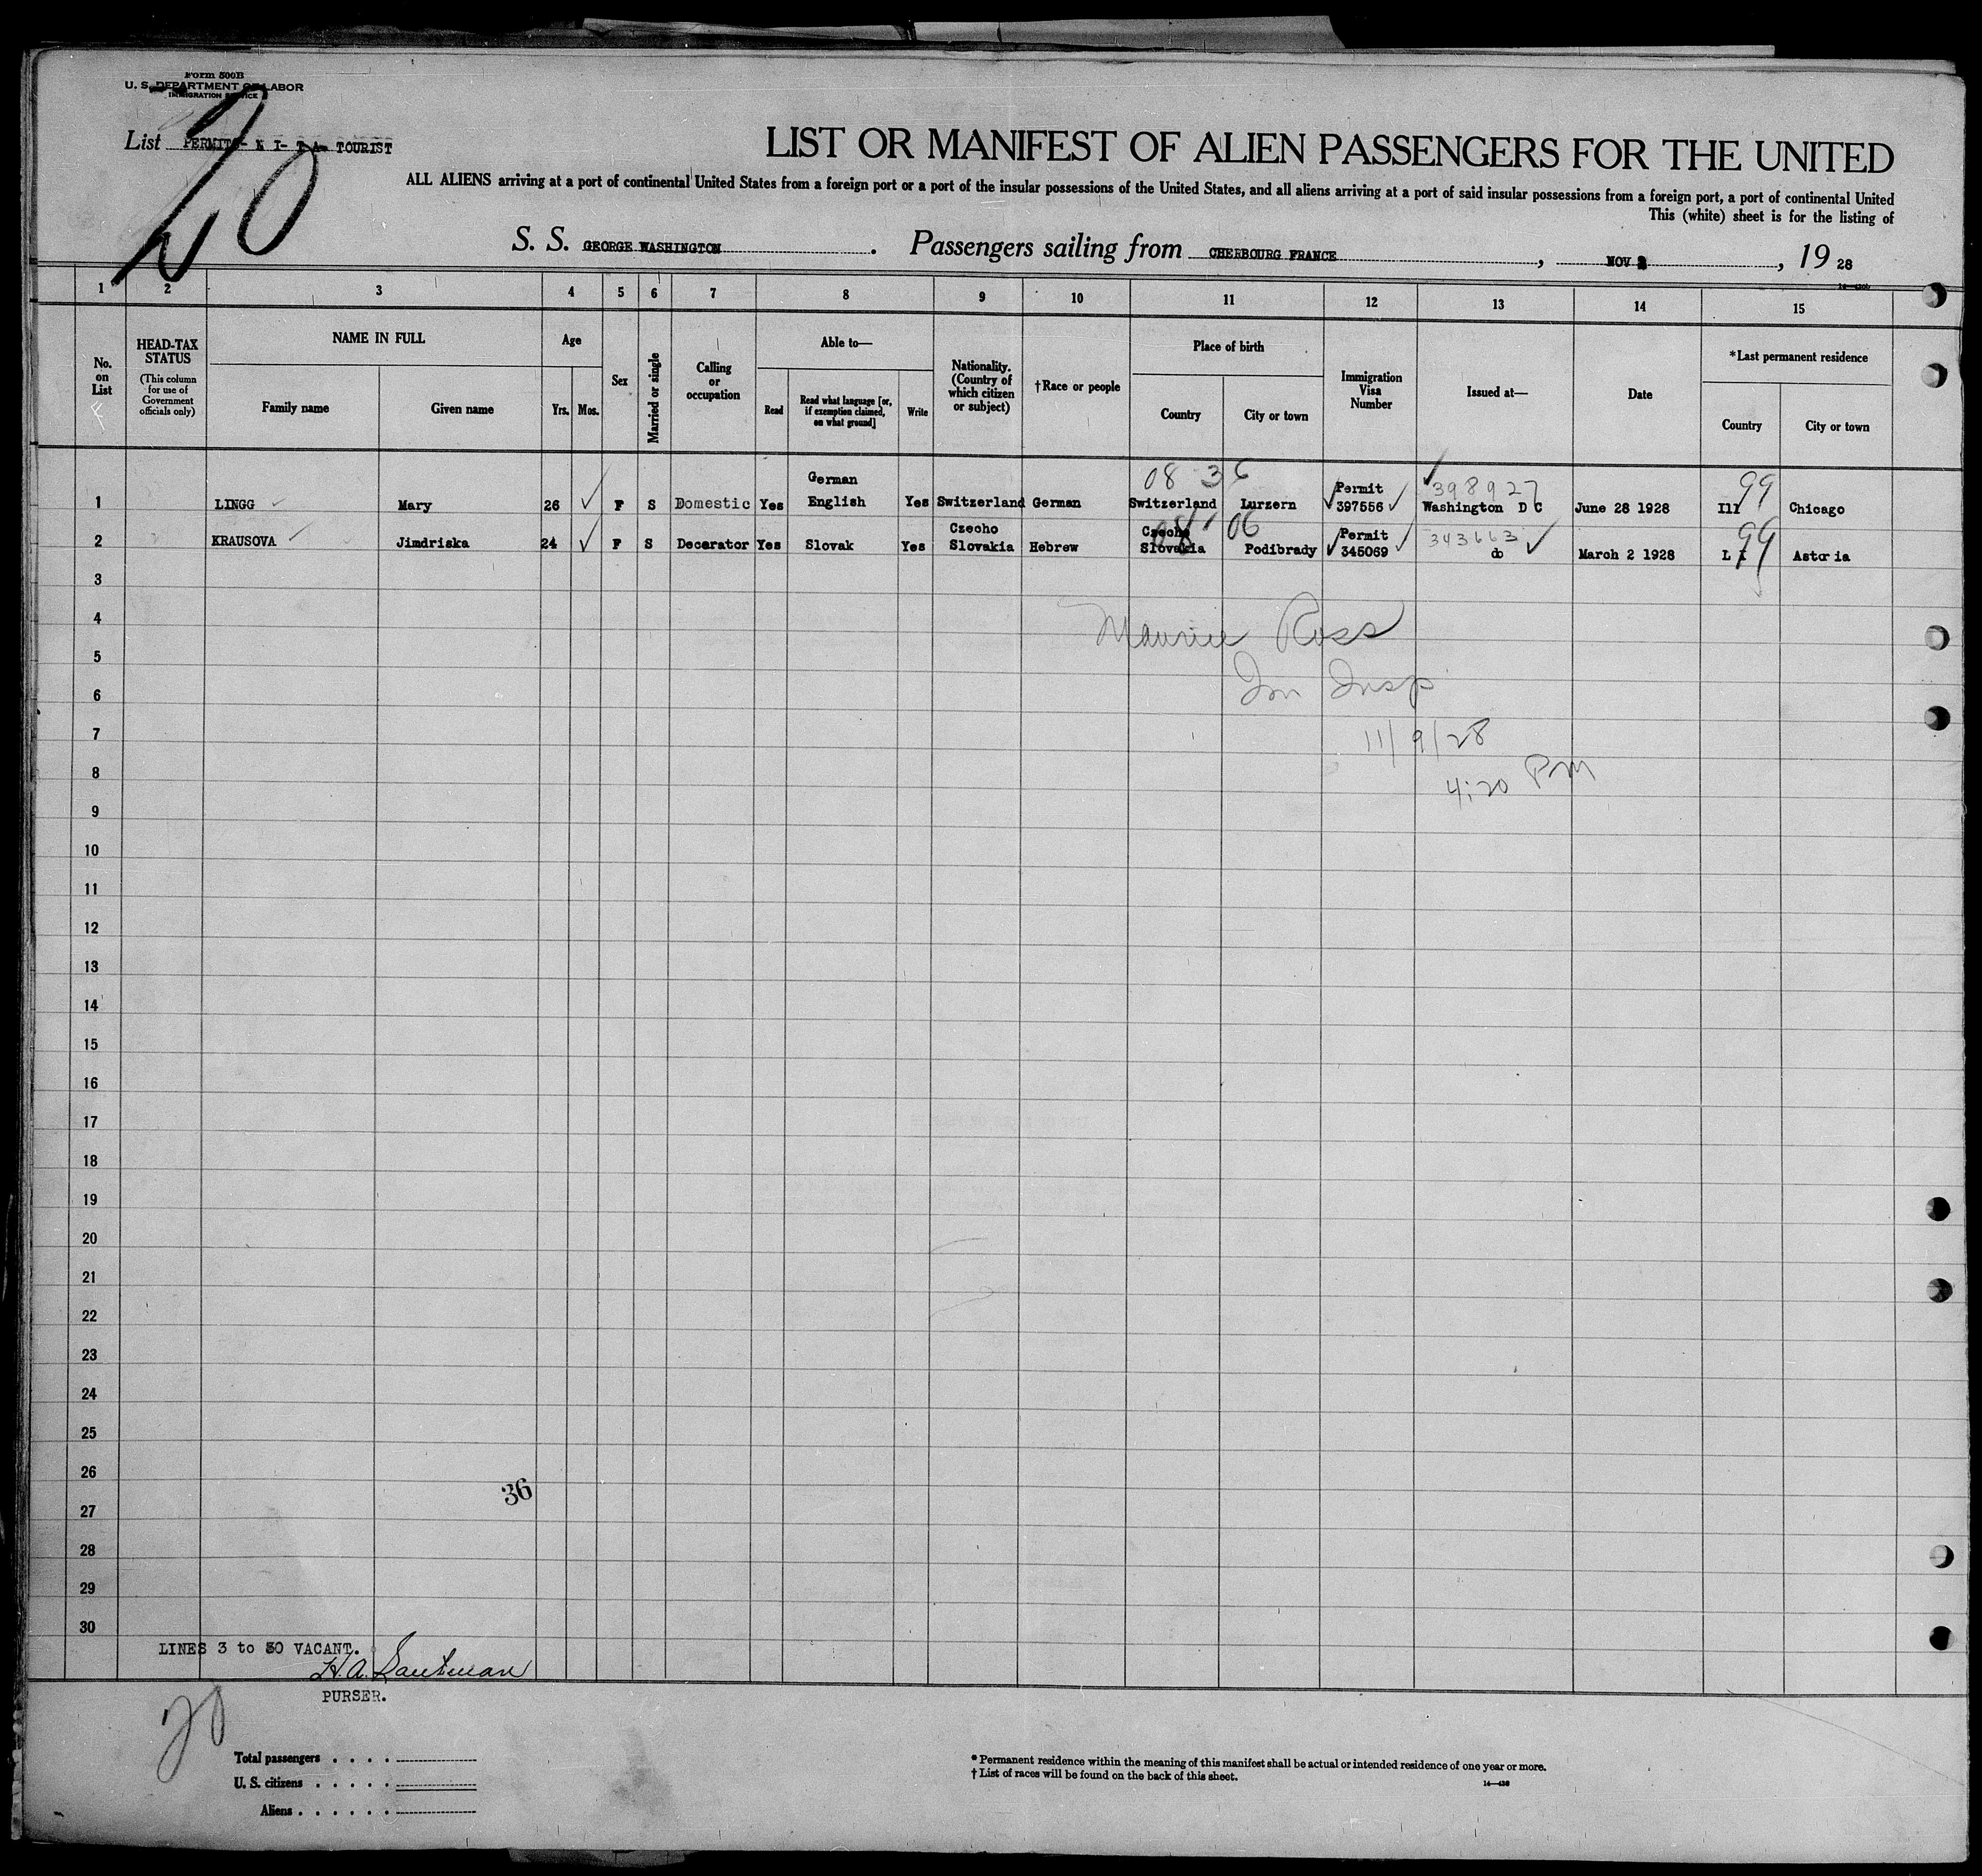 Form 500B
U. S. DEPARTMENT OF LABOR
IMMIGRATION SERVICE
20
List PERMITS- TOURIST
LIST OR MANIFEST OF ALIEN PASSENGERS FOR THE UNITED
ALL ALIENS arriving at a port of continental United States from a foreign port or a port of the insular possessions of the United States, and all aliens arriving at a port of said insular possessions from a foreign port, a port of continental United
This (white) sheet is for the listing of
S. S. GEORGE WASHINGTON. Passengers sailing from CHERBOURG FRANCE, NOV 2, 19 28
1 2 3 4 5 6 7 8 9 10 11 12 13 14 15
No. on List
HEAD-TAX STATUS
(This column for use of Government officials only)
NAME IN FULL
Family name
Given name
Age
Yrs. Mos.
Sex
Married or single
Calling or occupation
Able to—
Read
Read what language [or, if exemption claimed, on what ground]
Write
Nationality. (Country of which citizen or subject)
†Race or people
Place of birth
Country
City or town
Immigration Visa Number
Issued at—
Date
*Last permanent residence
Country
City or town
08 36 398927 99
1 LINGG Mary 26 F S Domestic Yes German English Yes Switzerland German Switzerland Lurzern Permit 397556 Washington D C June 28 1928 Ill Chicago
08 06 343663 99
2 KRAUSOVA Jimdriska 24 F S Decarator Yes Slovak Yes Czecho Slovakia Hebrew Czecho Slovakia Podibrady Permit 345069 do March 2 1928 L I Astoria
3
4
Maurice Ross
5
6
Im Insp
7
11/9/28
8
4:20 PM
9
10
11
12
13
14
15
16
17
18
19
20
21
22
23
24
25
26
36
27
28
29
30
LINES 3 to 30 VACANT.
H.A. Lautman
PURSER.
20
Total passengers
U. S. citizens
Aliens
* Permanent residence within the meaning of this manifest shall be actual or intended residence of one year or more.
† List of races will be found on the back of this sheet.